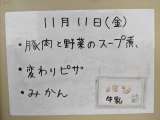 11月11日(金)
・豚肉と野菜のスープ煮、
・変わりピザ
・みかん
牛乳